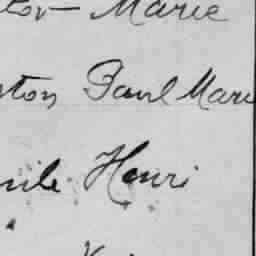 tor – Marie
ston Paul Mari
mile Henri